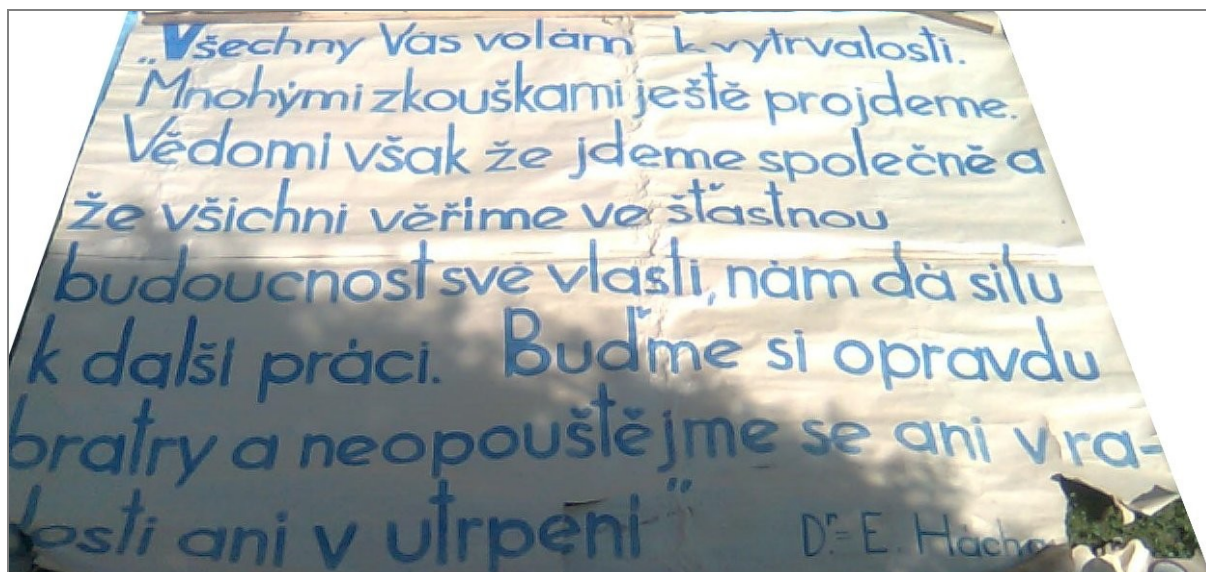 „Všechny Vás volám k vytrvalosti.
Mnohými zkouškami ještě projdeme.
Vědomi však že jdeme společně a
že všichni věříme ve šťastnou
budoucnost své vlasti, nám dá sílu
k další práci. Buďme si opravdu
bratry a neopouštějme se ani v ra-
dosti ani v utrpení"
Dr. E. Hácha